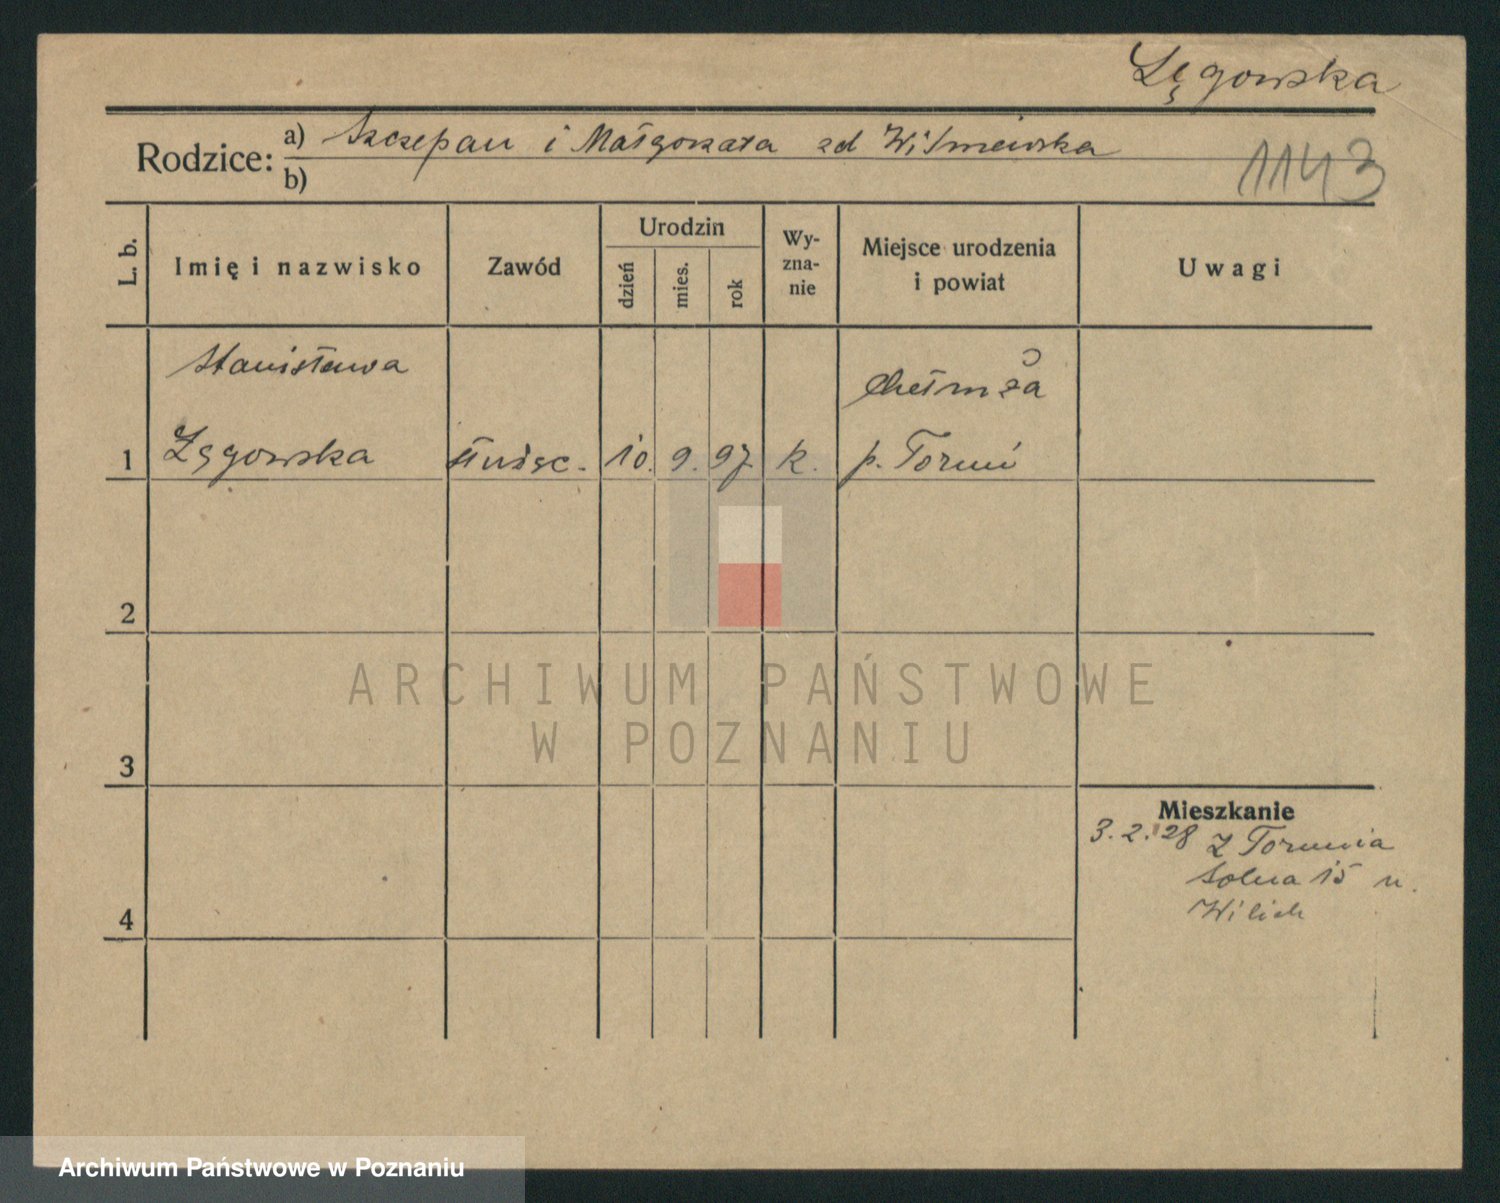 Łęgowska
Rodzice: a) Szczepan i Małgorzata zd Wiśniewska
b)
1143
L. b.
Imię i nazwisko
Zawód
Urodzin
dzień
mies.
rok
Wy-
zna-
nie
Miejsce urodzenia
i powiat
Uwagi
Stanisława
Chełmża
1 Łęgowska służąc. 10. 9. 97. k. p. Toruń
2
3
4
Mieszkanie
3.2.28 z Torunia
Solna 15 u.
Wilich
ARCHIWUM PAŃSTWOWE
W POZNANIU
Archiwum Państwowe w Poznaniu